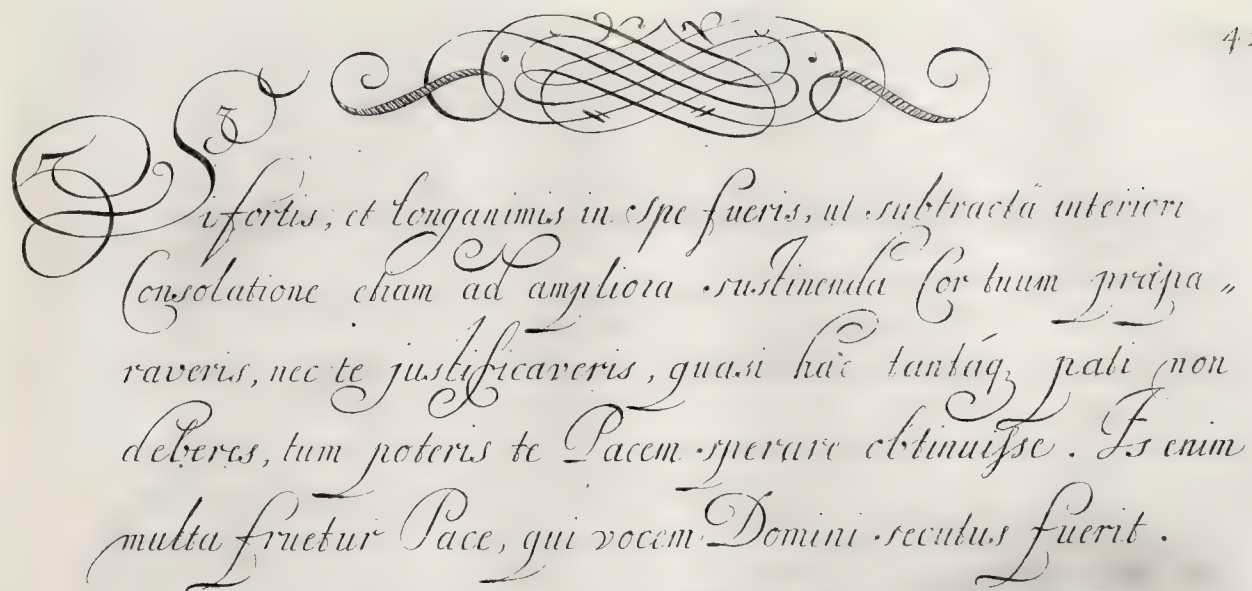 Si fortis, et longanimis in spe fueris, ut subtractâ interiori
Consolatione etiam ad ampliora sustinenda Cor tuum præpa„
raveris, nec te justificaveris, quasi hæc tantáq; pati non
deberes, tum poteris te Pacem sperare obtinuisse. Is enim
multa fruetur Pace, qui vocem Domini secutus fuerit.